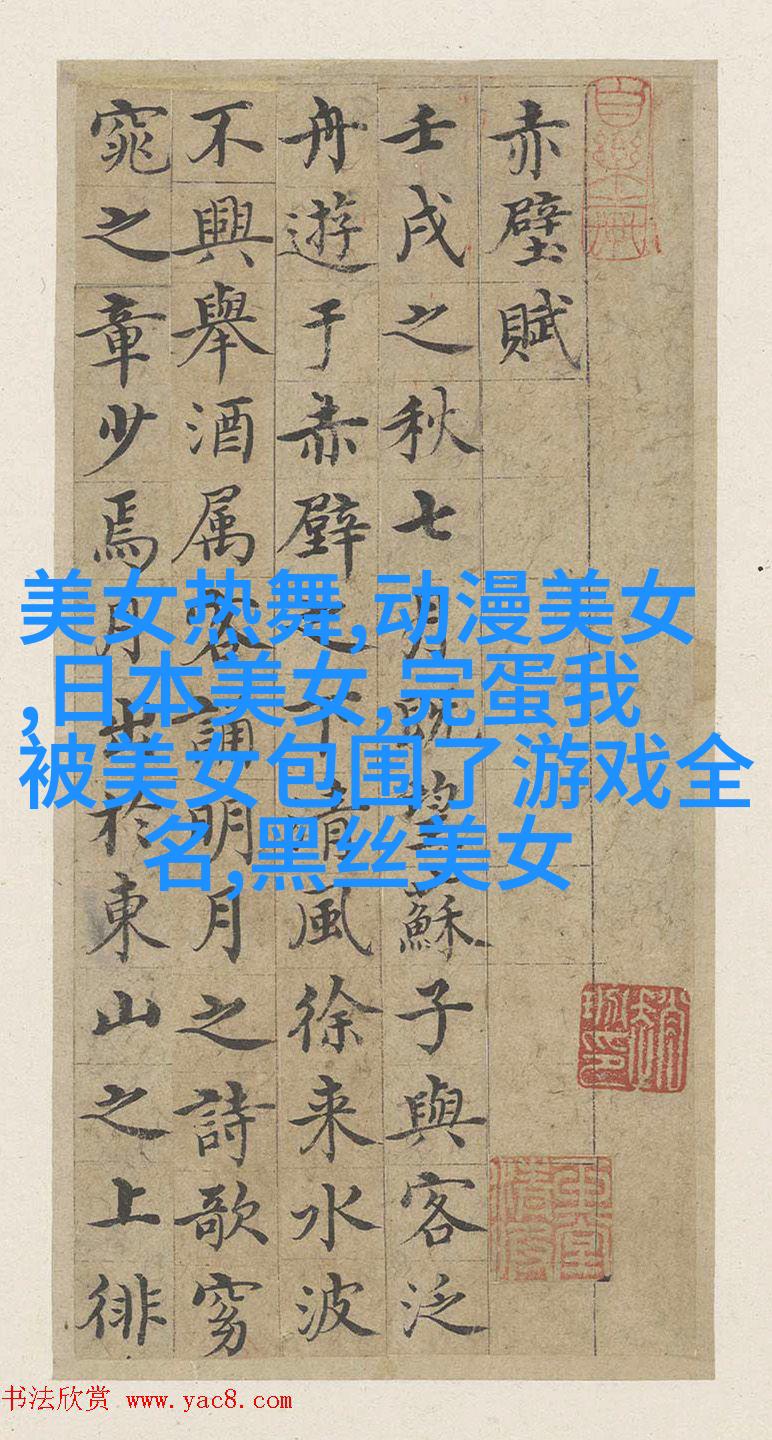 赤壁賦
壬戌之秋七月既望蘇子與客泛
舟遊于赤壁之下清風徐来水波
不興舉酒属客誦明月之詩歌窈
窕之章少焉月出於東山之上徘
美女热舞,动漫美女
,日本美女,完蛋我
被美女包围了游戏全
名,黑丝美女
书法欣赏 www.yac8.com